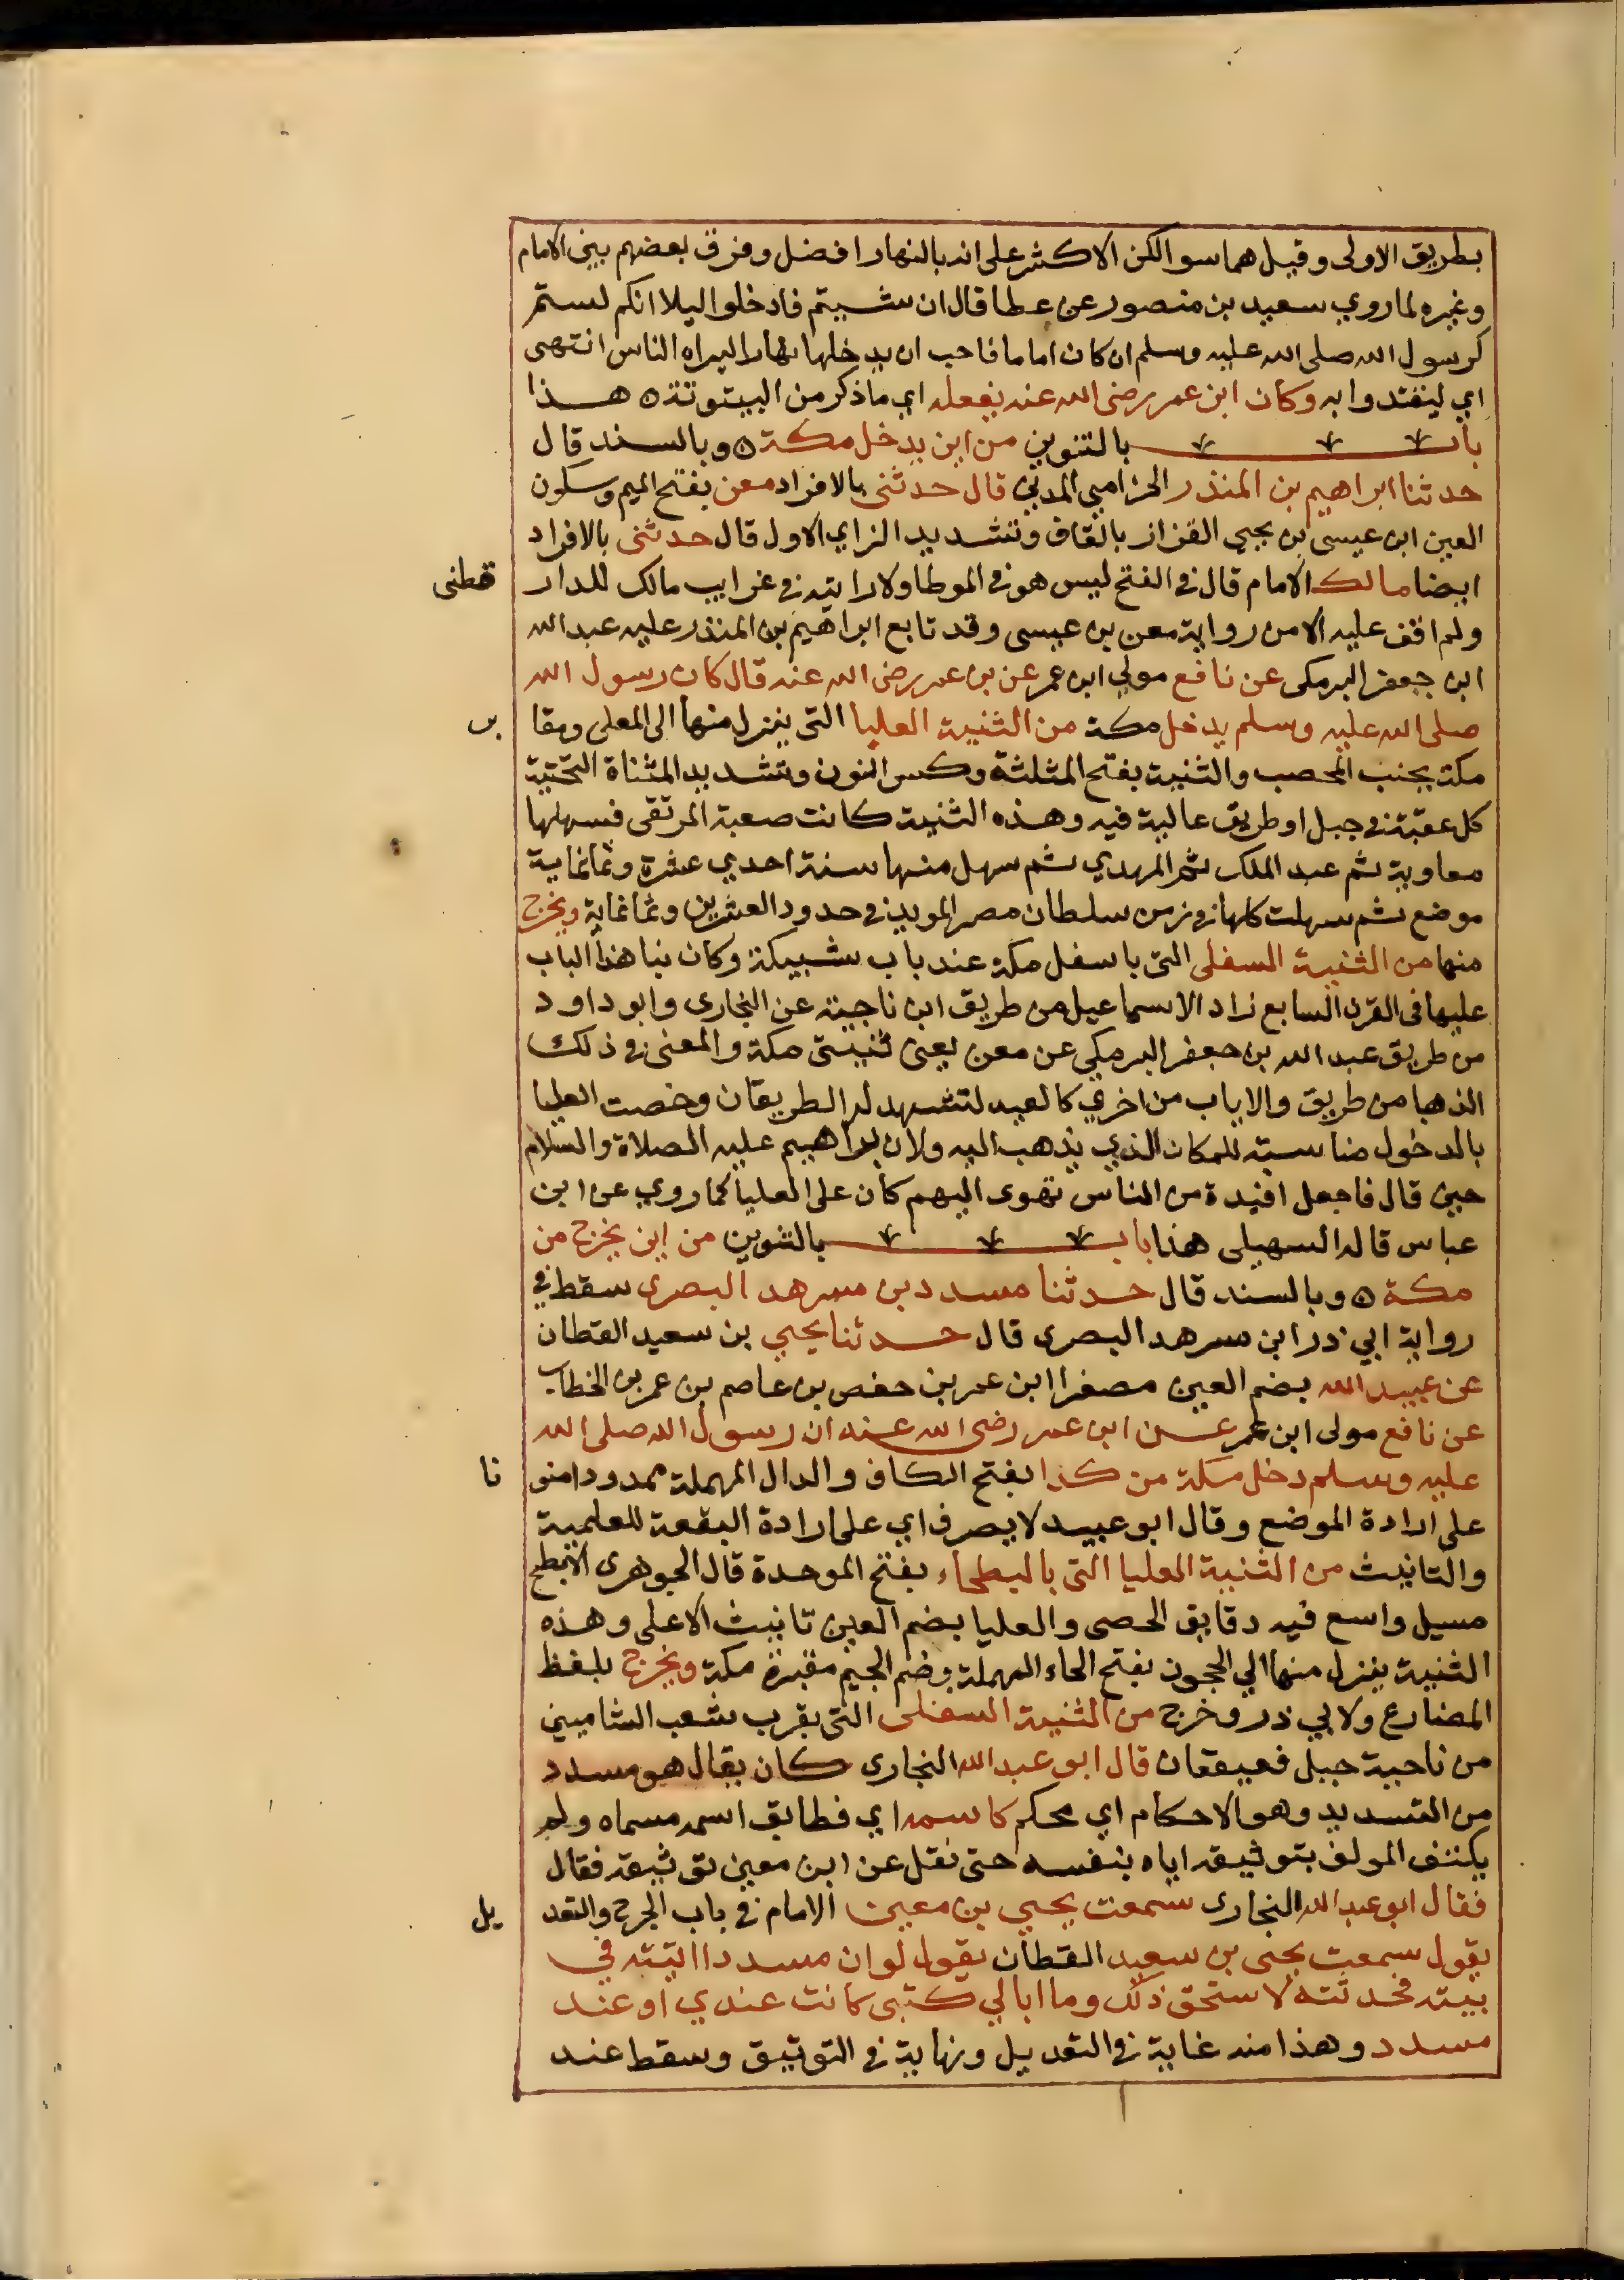 بطريق الاولى وقيل هما سوا لكن الاكثر على انه بالنهار افضل وفرق بعضهم بين الامام
وغيره لما روي سعيد بن منصور عن عطا قال ان شيتم فادخلوا ليلا انكم لستم
كرسول الله صلى الله عليه وسلم ان كان اماما فاحب ان يدخلها نهارا ليراه الناس انتهى
اي ليقتدوا به وكان ابن عمر رضى الله عنه يفعله اي ما ذكر من البيتوتة ه هذا
باب بالتنوين من اين يدخل مكة ه وبالسند قال
حدثنا ابراهيم بن المنذر الحزامي المدني قال حدثنى بالافراد معن بفتح الميم وسكون
العين ابن عيسى بن يحيي القزاز بالقاف وتشديد الزاي الاول قال حدثنى بالافراد
ايضا مالك الامام قال في الفتح ليس هو في الموطا ولا رايته في غرايب مالك للدار قطنى
ولم اقف عليه الا من رواية معن بن عيسى وقد تابع ابراهيم بن المنذر عليه عبد الله
ابن جعفر البرمكى عن نافع مولي ابن عمر عن بن عمر رضى الله عنه قال كان رسول الله
صلى الله عليه وسلم يدخل مكة من الثنية العليا التى ينزل منها الى المعلى ومقا بر
مكة بجنب المحصب والثنية بفتح المثلثة وكسر النون وتشديد المثناة التحتية
كل عقبة في جبل او طريق عالية فيه وهذه الثنية كانت صعبة المرتقى فسهلها
معاوية ثم عبد الملك ثم المهدي ثم سهل منها سنة احدي عشرة وثمانماية
موضع ثم سهلت كلها في زمن سلطان مصر المويد في حدود العشرين وثمانماية ويخرج
منها من الثنية السفلى التى باسفل مكة عند باب شبيكة وكان بنا هذا الباب
عليها فى القرن السابع زاد الاسماعيل من طريق ابن ناجية عن البخارى وابو داود
من طريق عبد الله بن جعفر البرمكي عن معن يعنى ثنيتى مكة والمعنى في ذلك
الذهبا من طريق والاياب من اخري كالعيد لتشهد له الطريقان وخصت العليا
بالدخول مناسبة للمكان الذي يذهب اليه ولان ابراهيم عليه الصلاة والسلام
حين قال فاجعل افيدة من الناس تهوى اليهم كان على العليا كما روي عن ابن
عباس قاله السهيلى هذا باب بالتنوين من اين يخرج من
مكة ه وبالسند قال حدثنا مسدد بن مسرهد البصرى سقط في
رواية ابي ذر ابن مسرهد البصرى قال حدثنا يحيي بن سعيد القطان
عن عبيد الله بضم العين مصغرا ابن عمر بن حفص بن عاصم بن عمر بن الخطاب
عن نافع مولى ابن عمر عن ابن عمر رضى الله عنه ان رسول الله صلى الله
عليه وسلم دخل مكة من كدا بفتح الكاف والدال المهملة ممدودا منو نا
على ارادة الموضع وقال ابو عبيد لا يصرف اي على ارادة البقعة للعلمية
والتانيث من الثنية العليا التى بالبطحاء بفتح الموحدة قال الجوهرى الابطح
مسيل واسع فيه دقايق الحصى والعليا بضم العين تانيث الاعلى وهذه
الثنية ينزل منها الي الحجون بفتح الحاء المهملة وضم الجيم مقبرة مكة ويخرج بلفظ
المضارع ولابي ذر وخرج من الثنية السفلى التى بقرب شعب الشاميين
من ناحية جبل قعيقعان قال ابو عبد الله البخارى كان يقال هو مسدد
من التسديد وهو الاحكام اي محكم كاسمه اي فطابق اسمه مسماه ولم
يكتف المولف بتوثيقه اياه بنفسه حتى نقل عن ابن معين توثيقه فقال
فقال ابو عبد الله البخارى سمعت يحيي بن معين الامام في باب الجرح والتعد يل
يقول سمعت يحيى بن سعيد القطان يقول لو ان مسددا اتيته في
بيته فحدثته لاستحق ذلك وما ابالي كتبى كانت عندي او عند
مسدد وهذا منه غاية في التعديل ونهاية في التوثيق وسقط عند